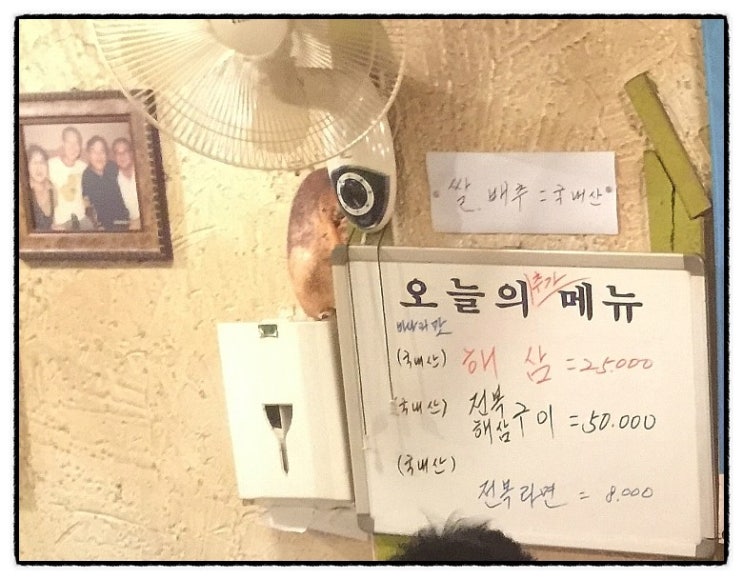 쌀.배추=국내산
오늘의 추가 메뉴
(국내산) 해삼=25.000
(국내산) 전복 해삼 구이=50.000
(국내산)
전복라면=8.000